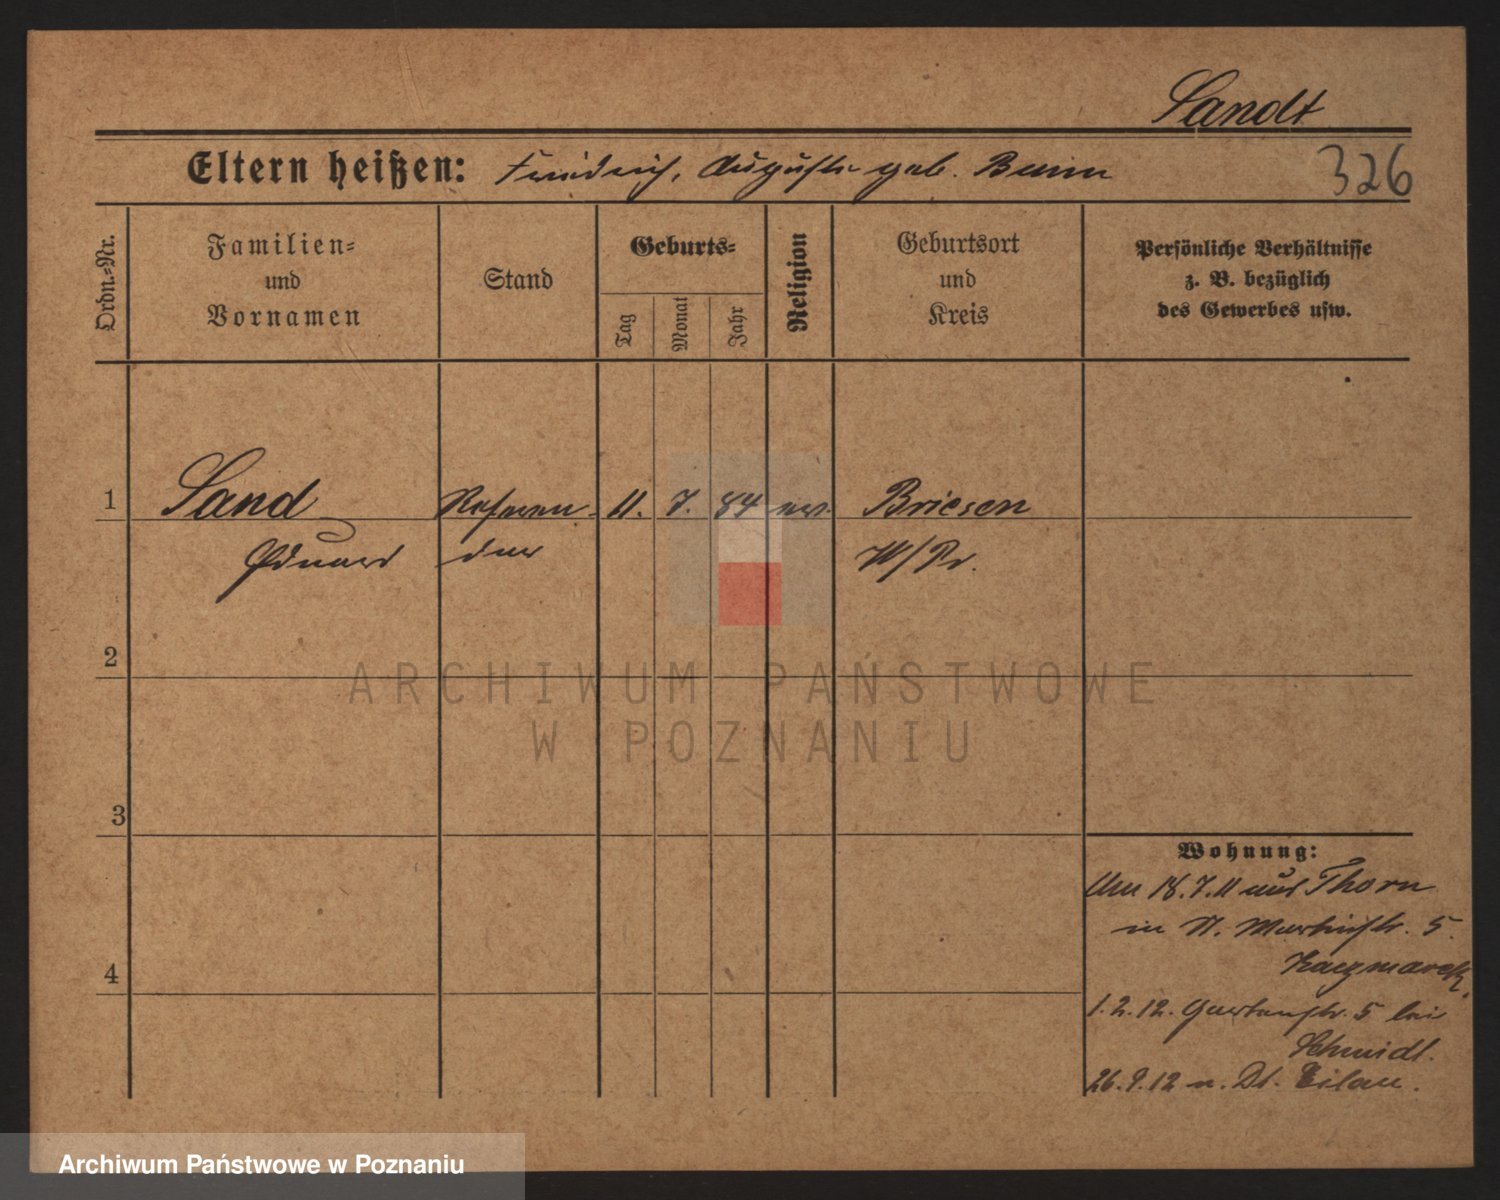 Sandt
Eltern heißen: Friedrich, Auguste geb.
326
Ordn.-Nr.
Familien-
und
Vornamen
Stand
Geburts-
Tag
Monat
Jahr
Religion
Geburtsort
und
Kreis
Persönliche Verhältnisse
z. B. bezüglich
des Gewerbes usw.
1 Sand Referen- 11. 7. 84 ev. Briesen
Eduard dar W/Pr.
2
3
4
Wohnung:
Am 18.7.11 aus Thorn
in St. Martinstr. 5.
Kaczmarek.
1.2.12. Gartenstr. 5 bei
Schmidt.
26.9.12 n. Dt. Eilau.
ARCHIWUM PAŃSTWOWE
W POZNANIU
Archiwum Państwowe w Poznaniu